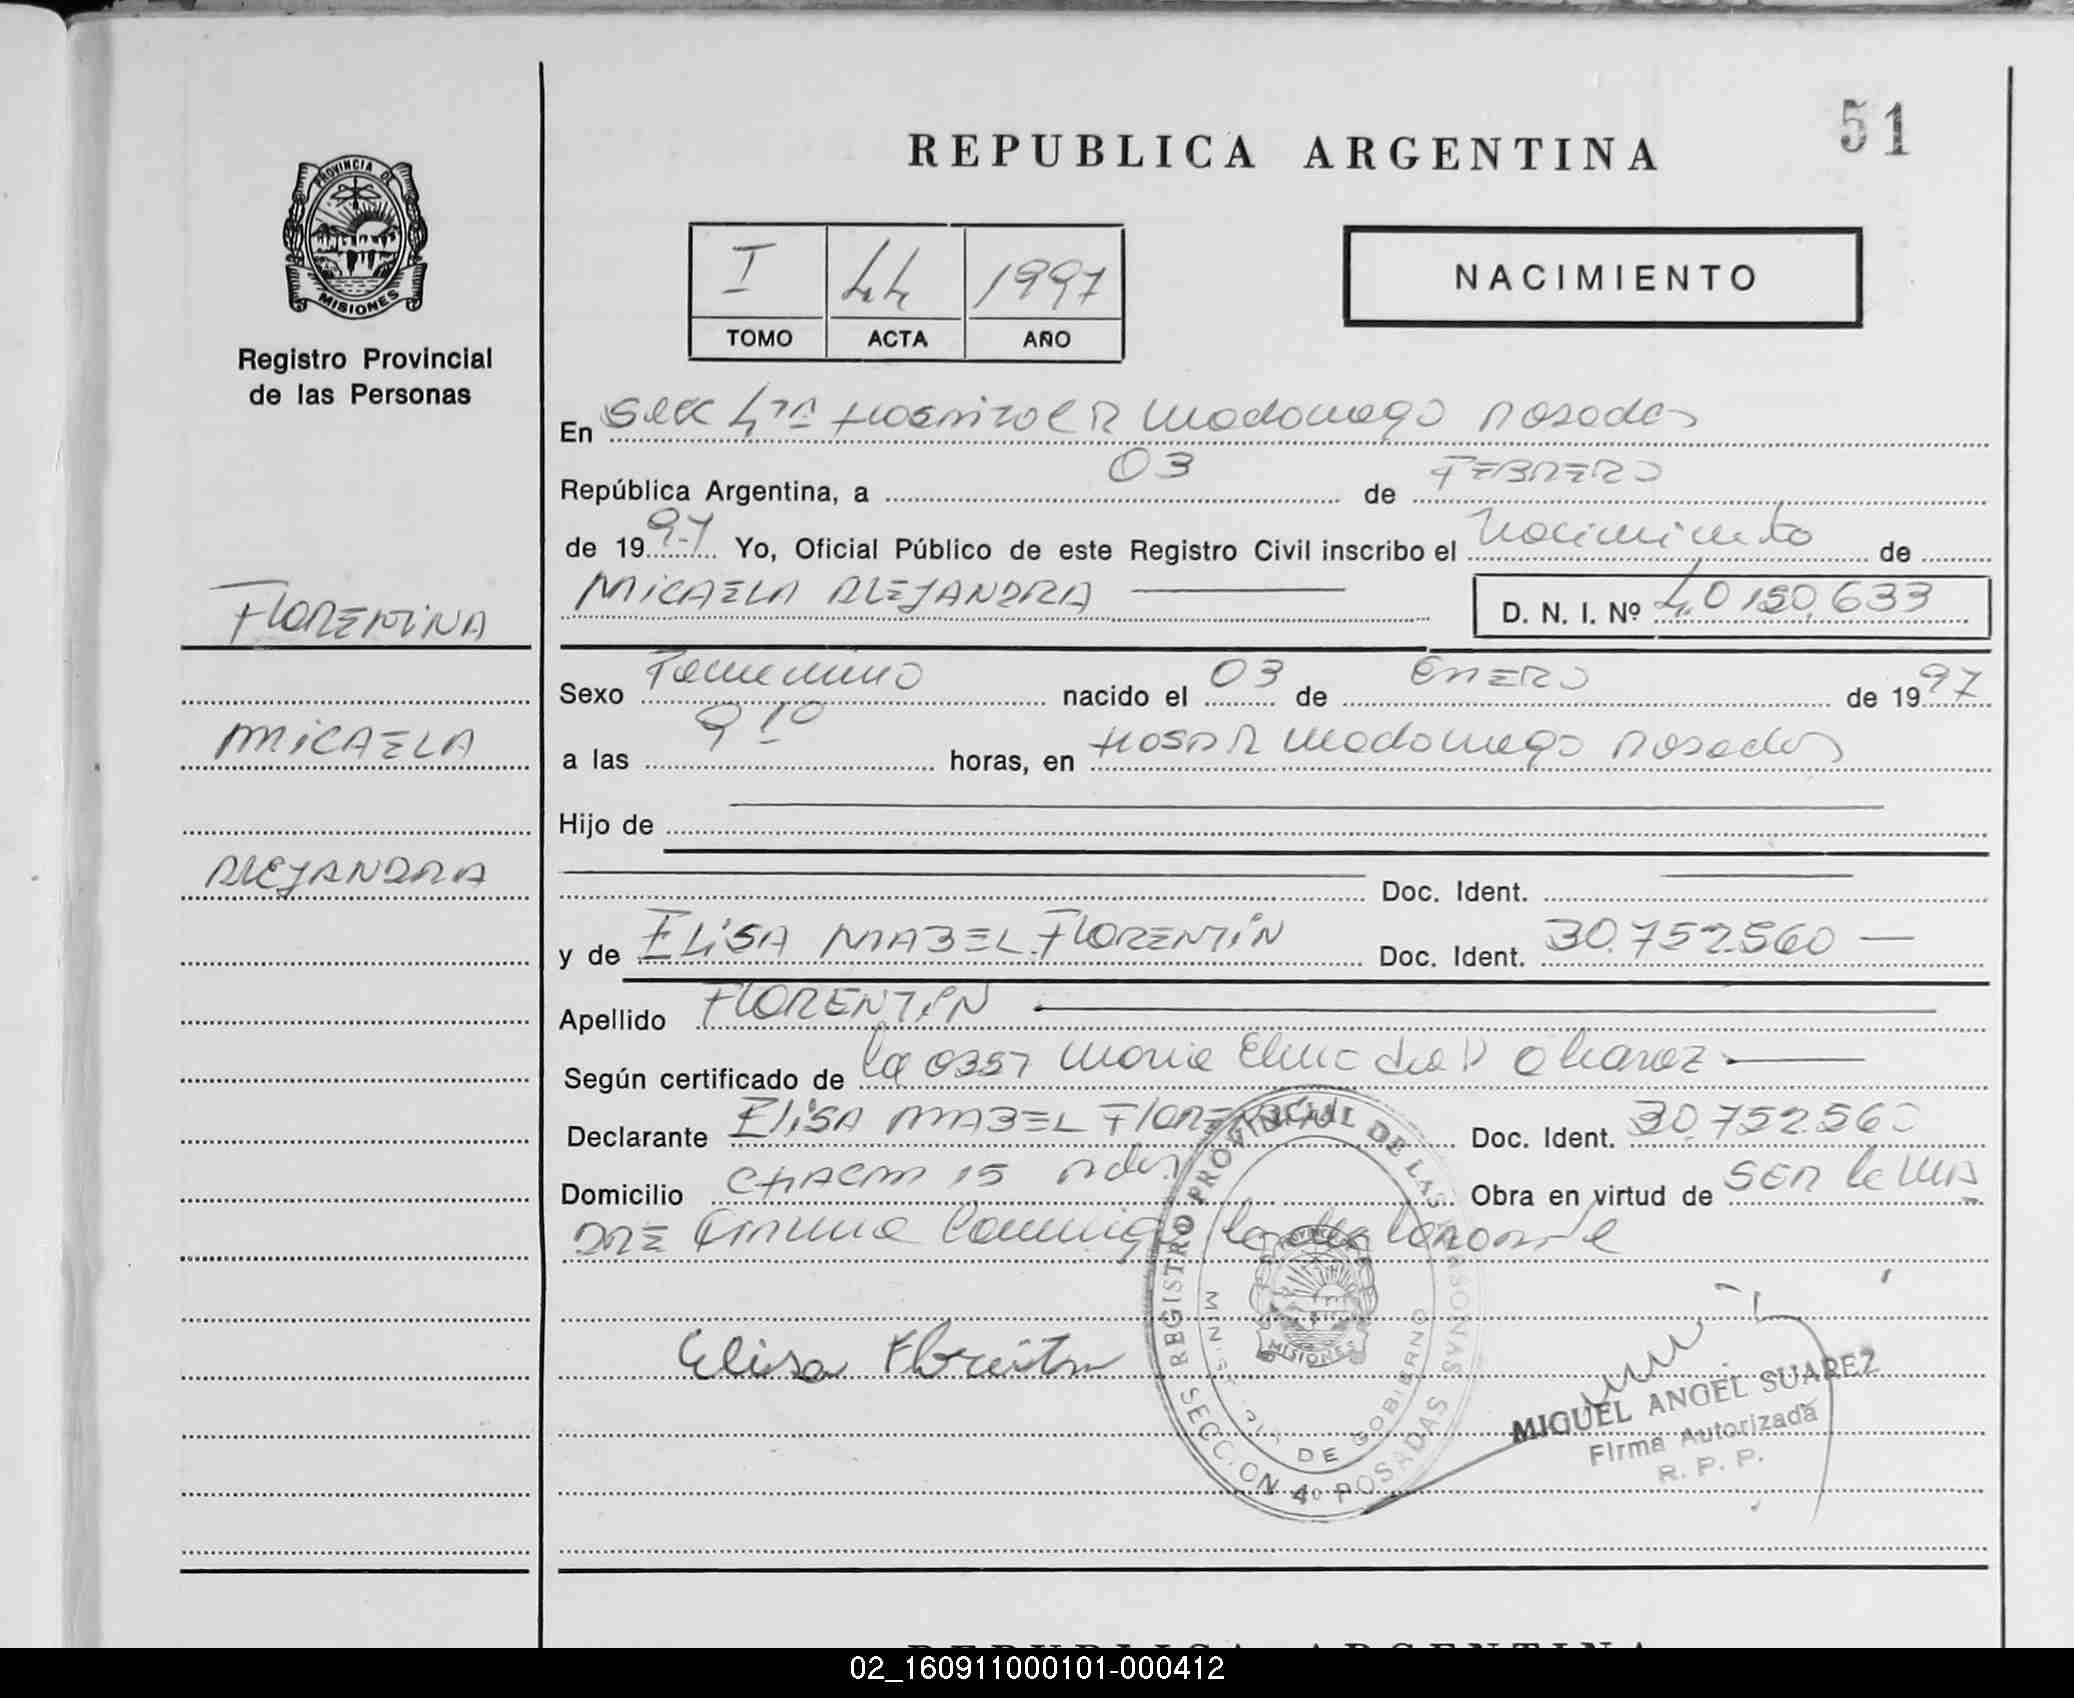 51
REPUBLICA ARGENTINA
PROVINCIA DE
MISIONES
Registro Provincial
de las Personas
I 44 1997
TOMO ACTA AÑO
NACIMIENTO
En Secc 4ta Hospital R Madariaga Posadas
República Argentina, a 03 de FEBRERO
de 1997 Yo, Oficial Público de este Registro Civil inscribo el Nacimiento de
MICAELA ALEJANDRA D. N. I. Nº 40.150.633
FLORENTINA
MICAELA
ALEJANDRA
Sexo Femenino nacido el 03 de ENERO de 1997
a las 9 10 horas, en HOSP R Madariaga Posadas
Hijo de
Doc. Ident.
y de ELISA MABEL FLORENTIN Doc. Ident. 30.752.560
Apellido FLORENTIN
Según certificado de la OBST Maria Elena D Alvarez
Declarante ELISA MABEL FLORENTIN Doc. Ident. 30.752560
Domicilio CHACRA 15 Pdas Obra en virtud de SER la MA
DRE Firma Conmigo la declarante
Elisa Florentin
REGISTRO PROVINCIAL DE LAS PERSONAS
MINISTERIO DE GOBIERNO
PROVINCIA DE
MISIONES
SECCION 4º POSADAS
MIGUEL ANGEL SUAREZ
Firma Autorizada
R. P. P.
REPUBLICA ARGENTINA
02_160911000101-000412